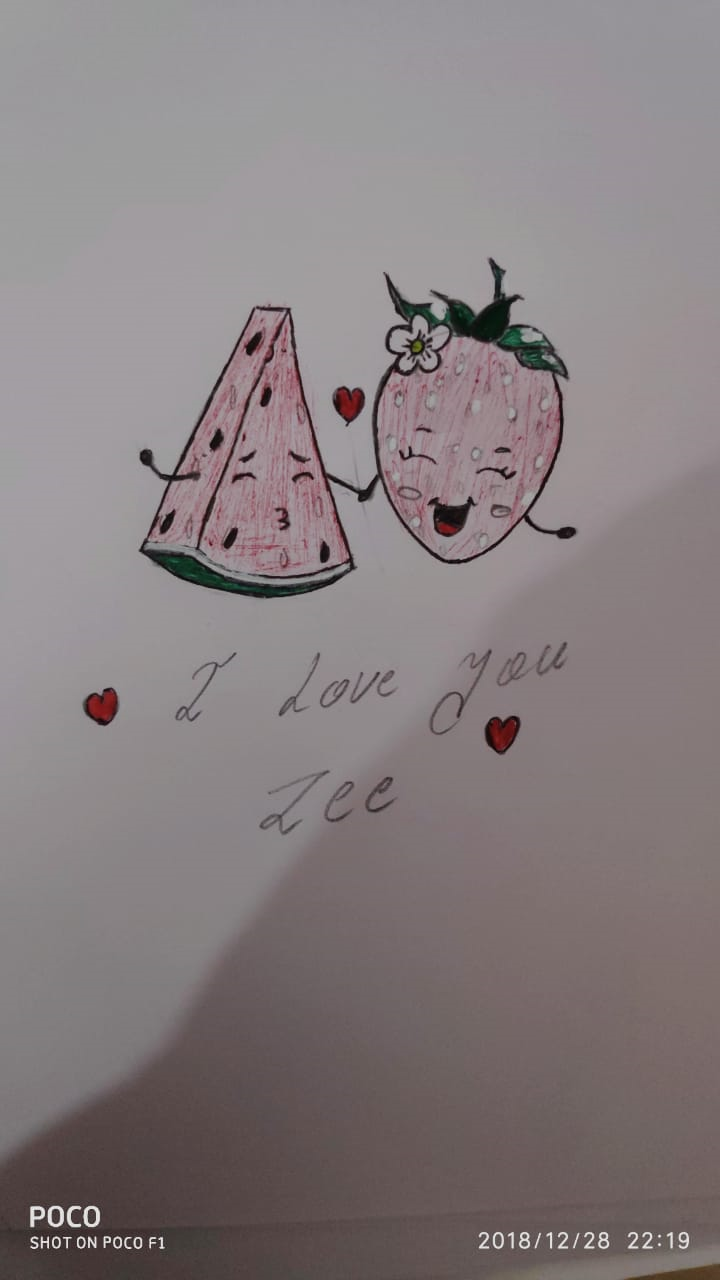 I Love You
Zee
POCO
SHOT ON POCO F1
2018/12/28 22:19